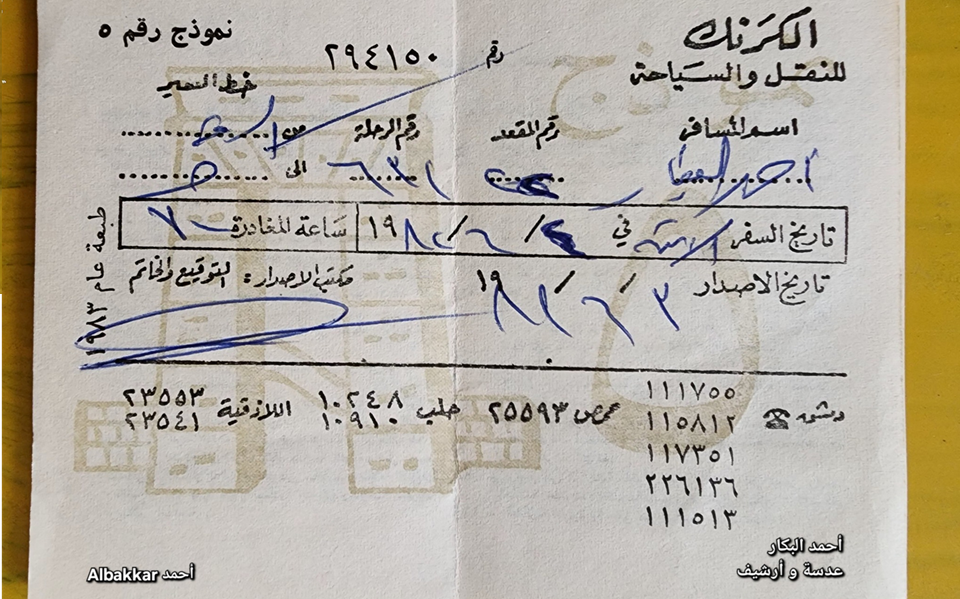 الكرنك
للنقل والسياحة
نموذج رقم ٥
رقم ٢٩٤١٥٠
خط السير
اسم المسافر رقم المقعد رقم الرحلة من
احمد ٦٣١ الى
تاريخ السفر في / ٦ / ١٩ ساعة المغادرة ٧
تاريخ الاصدار ٣ / ٦ / ١٩ مكتب الاصدار: التوقيع والخاتم
طبعة عام ١٩٨٣
دمشق ☎ ١١١٧٥٥
١١٥٨١٢
١١٧٣٥١
٢٢٦١٣٦
١١١٥١٣
حمص ٢٥٥٩٣
حلب ١٠٢٤٨
١٠٩١٠
اللاذقية ٢٣٥٥٣
٢٣٥٤١
نموذج
أحمد البكار
عدسة و أرشيف
أحمد Albakkar